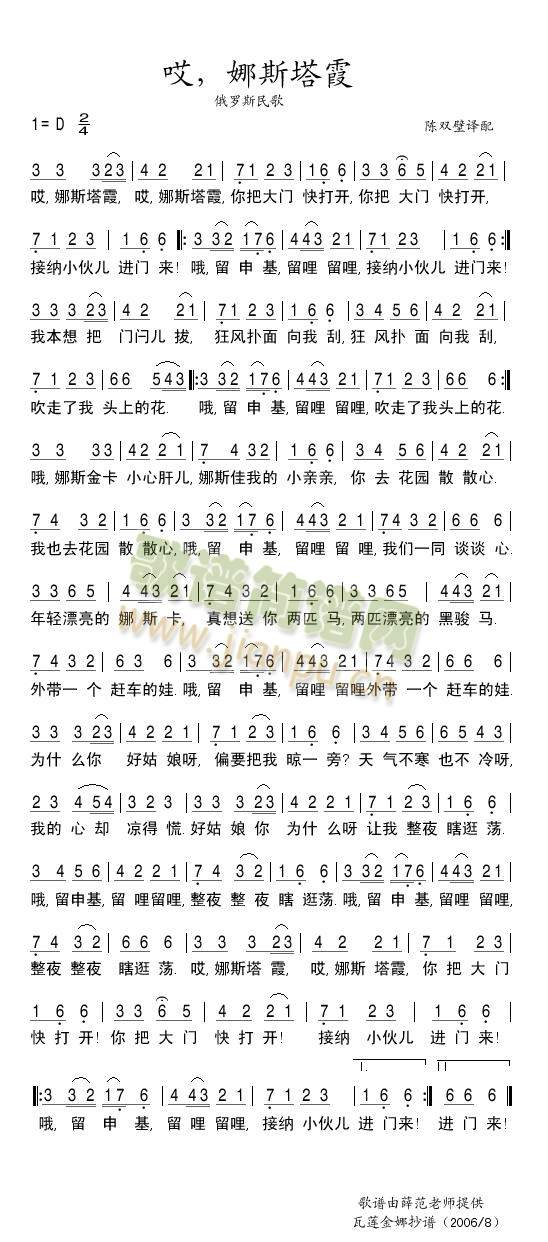 哎，娜斯塔霞
俄罗斯民歌
1=D 2/4
陈双璧译配
3 3 323 | 4 2 21 | 71 2 3 | 1 6 6 | 3 3 6 5 | 4 2 21 |
哎,娜斯塔霞, 哎,娜斯塔霞,你把大门 快打开,你把 大门 快打开,
7 1 2 3 | 1 6 6 ‖: 3 32 176 | 443 21 | 71 23 | 1 6 6 :‖
接纳小伙儿 进门 来! 哦,留 申 基,留哩 留哩,接纳小伙儿 进门来!
3 3 3 23 | 4 2 21 | 7 1 2 3 | 1 6 6 | 3 4 5 6 | 4 2 21 |
我本想 把 门闩儿 拔, 狂风扑面 向我 刮,狂 风扑 面 向我 刮,
7 1 2 3 | 66 543 ‖: 3 32 176 | 443 21 | 71 2 3 | 66 6 :‖
吹走了我 头上的花. 哦,留 申 基,留哩 留哩,吹走了我 头上的花.
3 3 33 | 42 21 | 7 4 32 | 1 6 6 | 3 4 5 6 | 42 21 |
哦,娜斯金卡 小心肝儿,娜斯佳我的 小亲亲, 你 去 花园 散 散心.
7 4 3 2 | 1 6 6 | 3 32 17 6 | 443 2 1 | 74 3 2 | 6 6 6 |
我也去花园 散 散心,哦,留 申 基,留哩 留 哩,我们一同 谈谈 心.
3 3 6 5 | 4 43 21 | 7 4 3 2 | 1 6 6 | 3 3 65 | 4 43 21 |
年轻漂亮的 娜 斯 卡, 真想送 你 两匹 马,两匹漂亮的 黑骏 马.
7 4 3 2 | 6 3 6 | 3 32 176 | 443 2 1 | 74 3 2 | 6 3 6 |
外带一 个 赶车的娃.哦,留 申 基,留哩 留哩外带 一个 赶车的娃.
3 3 323 | 4 2 2 1 | 7 1 2 3 | 1 6 6 | 3 4 5 6 | 65 4 3 |
为什 么你 好姑 娘呀, 偏要把我 晾一 旁? 天 气不寒 也不 冷呀,
2 3 4 54 | 3 2 2 | 3 3 3 23 | 4 2 2 1 | 7 1 2 3 | 1 6 6 |
我的 心 却 凉得 慌.好姑 娘 你 为什 么呀 让我 整夜 瞎逛 荡.
3 4 5 6 | 4 2 2 1 | 7 4 3 2 | 1 6 6 | 3 32 176 | 443 21 |
哦,留申基,留 哩留哩,整夜 整 夜 瞎逛 荡.哦,留 申 基,留哩 留哩,
7 4 3 2 | 1 6 6 | 3 3 3 23 | 4 2 2 1 | 7 1 2 3 |
整夜 整夜 瞎逛 荡.哎,娜斯塔 霞, 哎,娜斯 塔霞, 你 把 大门
1 6 6 | 3 3 6 5 | 4 2 2 1 | 7 1 2 3 | 1 6 6 |
快 打 开! 你 把 大 门 快 打 开! 接纳 小伙儿 进 门 来!
1. 2.
‖: 3 3 2 17 6 | 4 43 2 1 | 7 1 2 3 | 1 6 6 :‖ 6 6 6 ‖
哦, 留 申 基, 留 哩 留哩, 接纳 小伙儿 进 门 来! 进 门 来!
歌谱由薛范老师提供
瓦莲金娜抄谱（2006/8）
歌谱简谱网
www.jianpu.cn